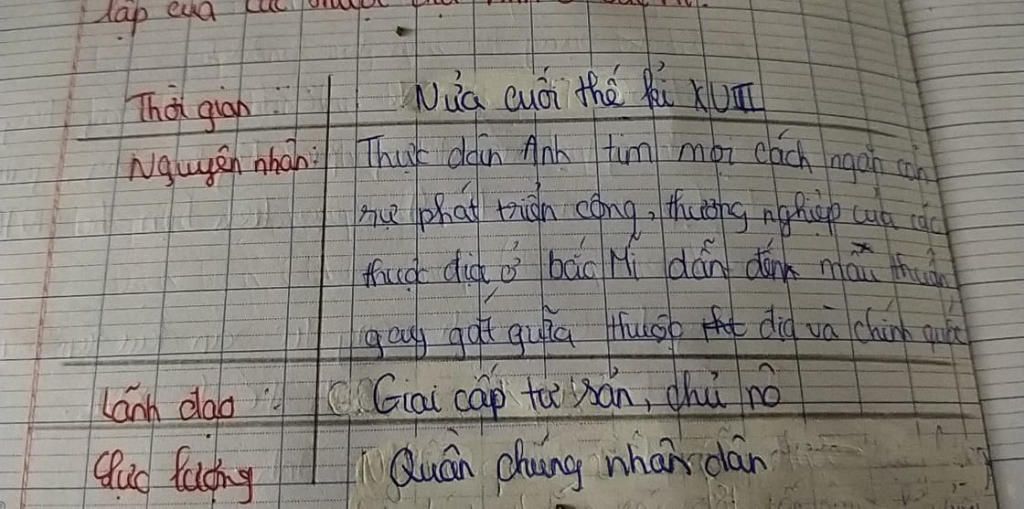 lập của các
Thời gian : Nửa cuối thế kỉ XVIII
Nguyên nhân: Thực dân Anh tìm mọi cách ngăn cản
sự phát triển công, thương nghiệp của các
thuộc địa ở bắc Mĩ dẫn đến mâu thuẫn
gay gắt giữa thuộc địa và chính quốc
Lãnh đạo : Giai cấp tư sản, chủ nô
Lực lượng Quần chúng nhân dân